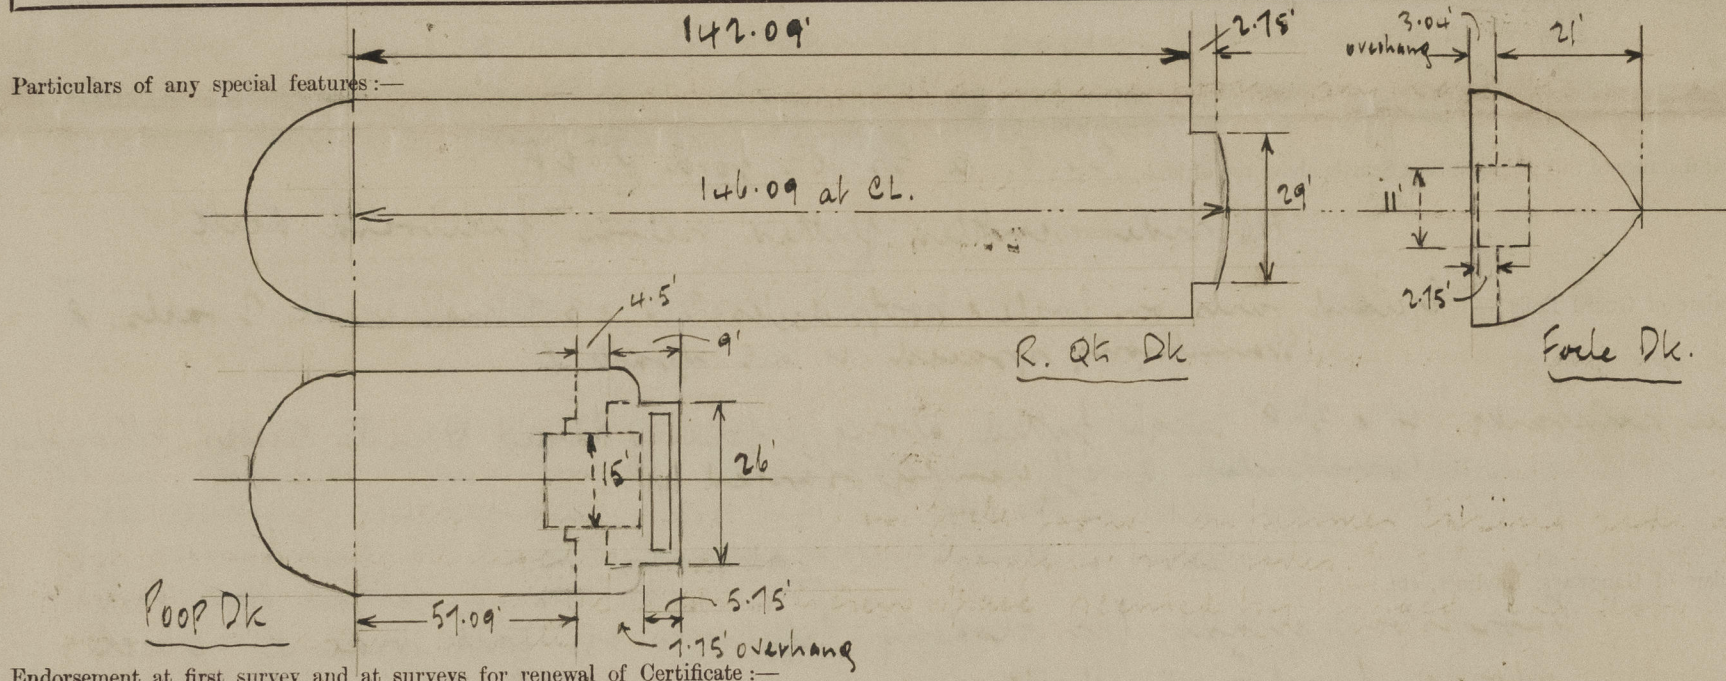 142.09'
2.75'
3.04'
overhang
21'
Particulars of any special features :—
146.09 at CL.
29'
11'
2.75'
4.5'
9'
R. Qtr Dk
Focle Dk.
15'
26'
Poop Dk
57.09'
5.75'
7.75' overhang
Endorsement at first survey and at surveys for renewal of Certificate :—